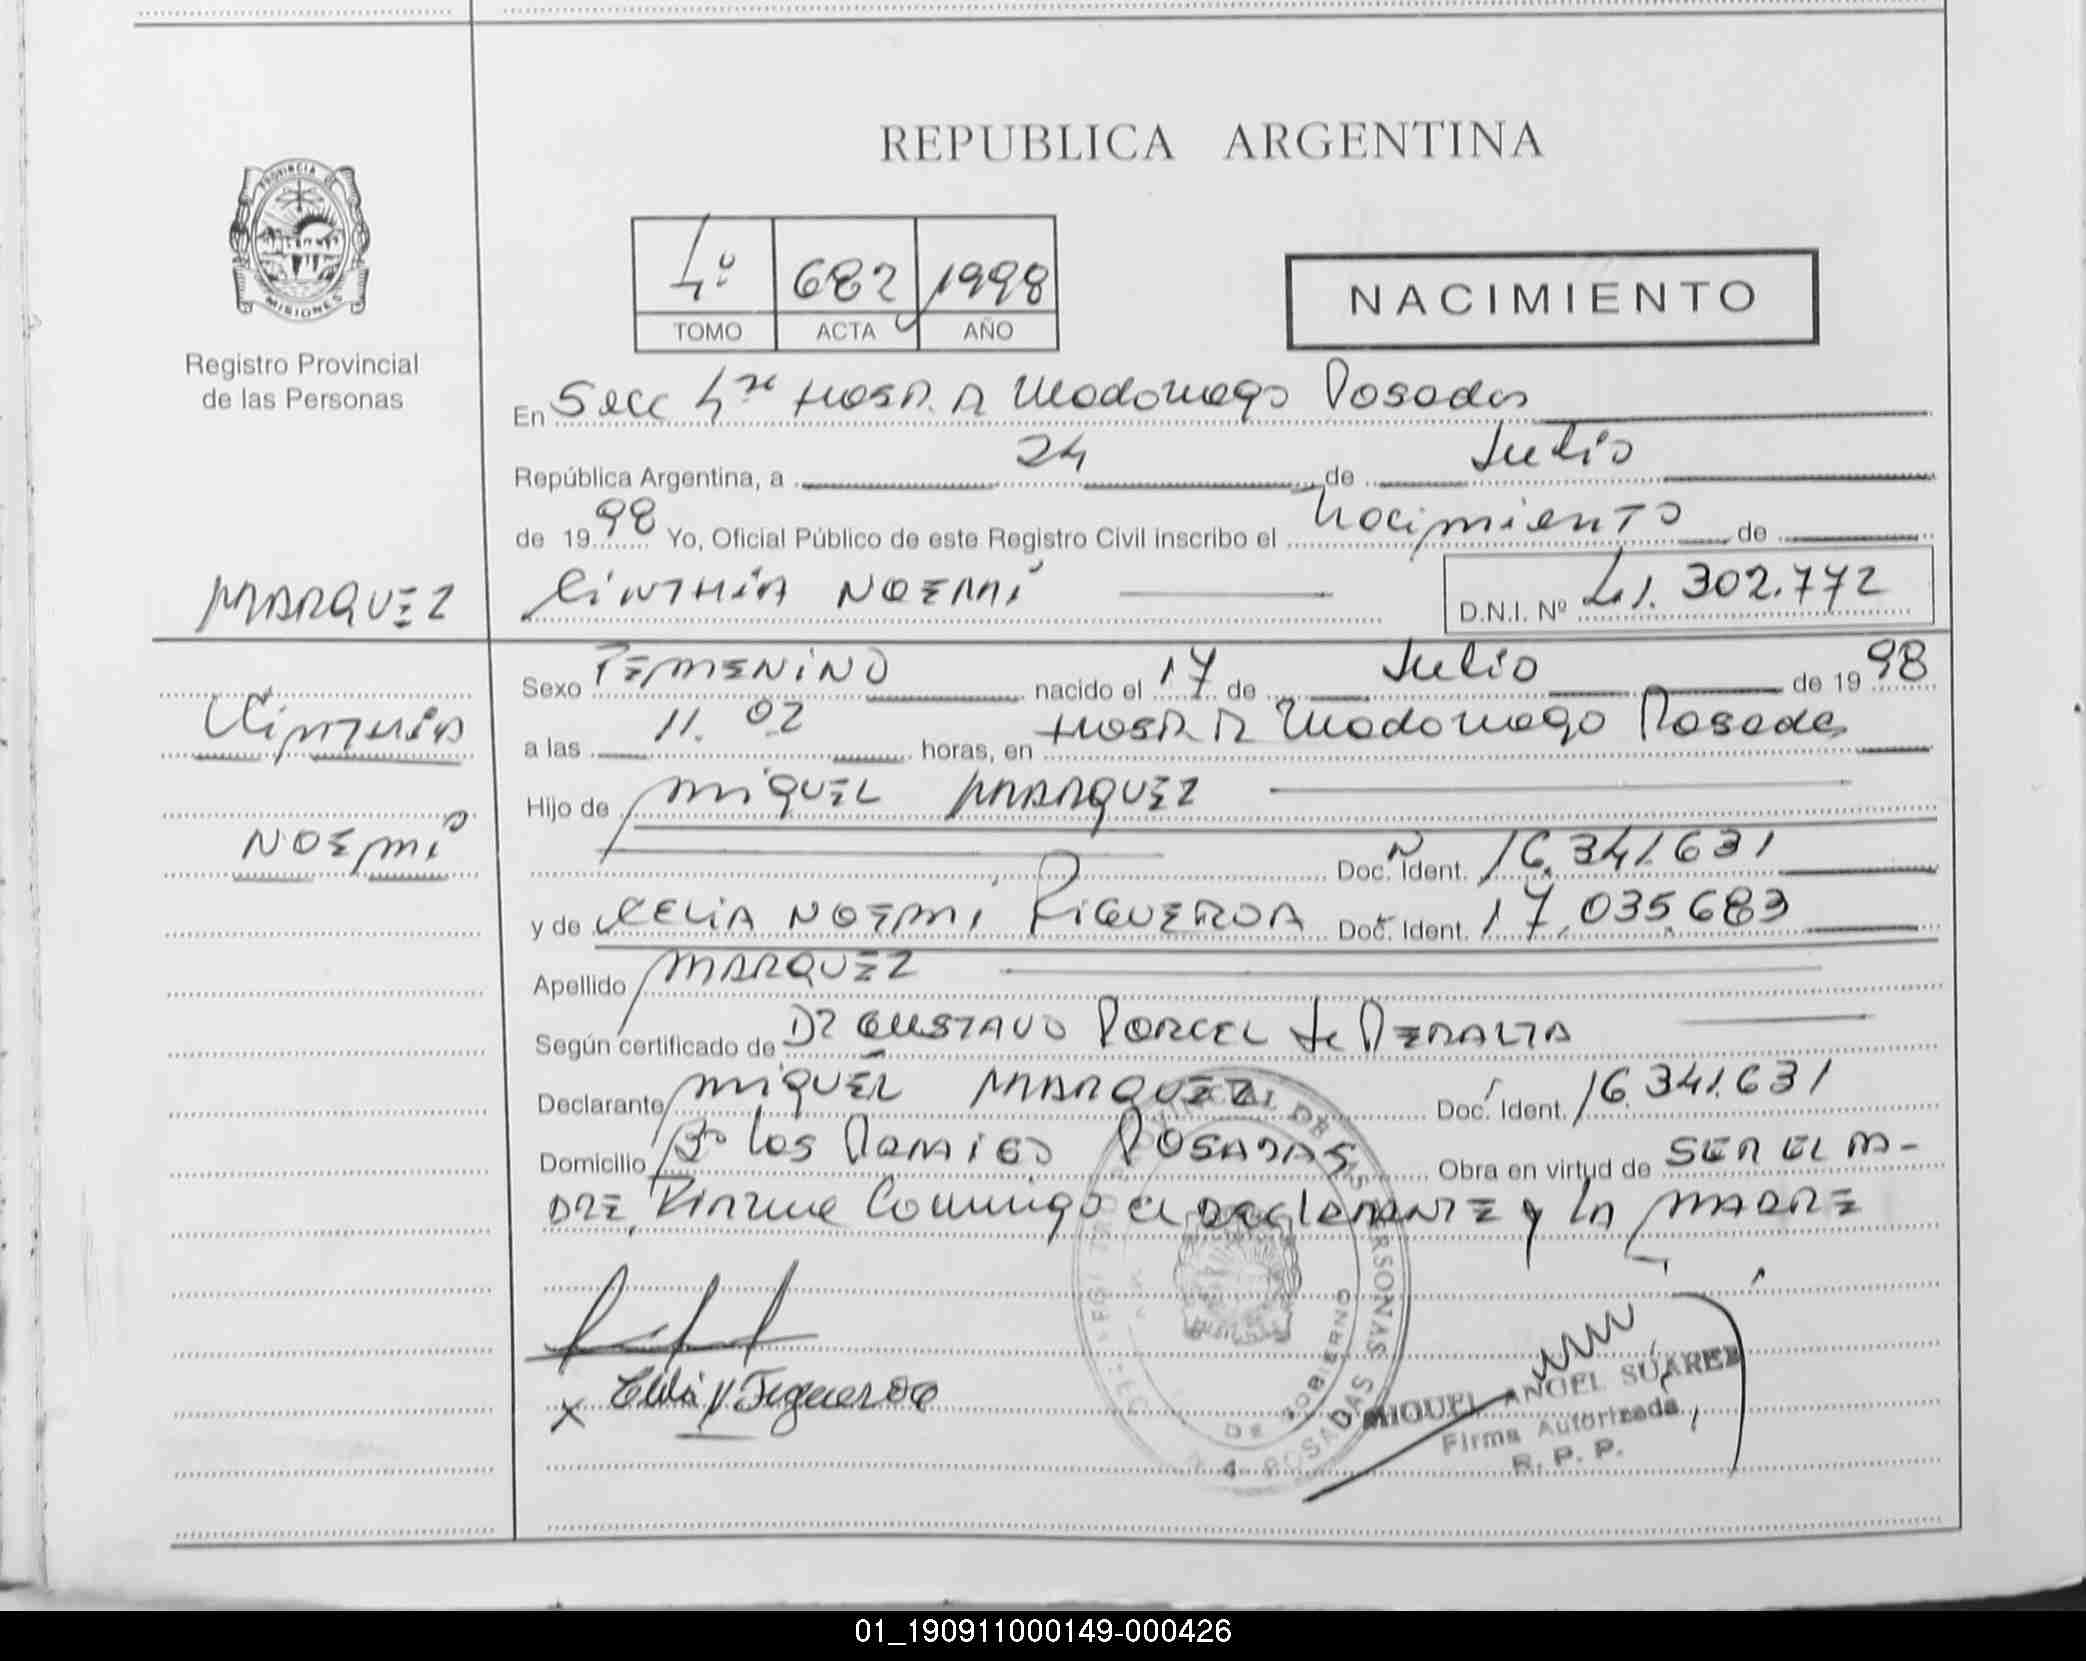 REPUBLICA ARGENTINA
PROVINCIA DE MISIONES
Registro Provincial
de las Personas
4º 682 1998
TOMO ACTA AÑO
NACIMIENTO
En Secc 4ta Hosp. R Madariaga Posadas
República Argentina, a 24 de Julio
de 1998 Yo, Oficial Público de este Registro Civil inscribo el Nacimiento de
MARQUEZ
CiNTHiA NOEMÍ D.N.I. Nº 41.302.772
Cinthia
NOEMÍ
Sexo FEMENiNO nacido el 17 de Julio de 1998
a las 11.02 horas, en Hosp. R Madariaga Posadas
Hijo de MiGUEL MARQUEZ
Doc. Ident. 16.341.631
y de CELiA NOEMÍ FiGUEROA Doc. Ident. 17.035.683
Apellido MARQUEZ
Según certificado de Dr GUSTAVO PORCEL de PERALTA
Declarante MiGUEL MARQUEZ Doc. Ident. 16.341.631
Domicilio Bº Los POSADAS Obra en virtud de SER EL PA-
DRE, Firma Conmigo el DECLARANTE y LA MADRE
x Celia N Figueroa
REGISTRO PROVINCIAL DE LAS PERSONAS
DE GOBIERNO
POSADAS
MIGUEL ANGEL SUAREZ
Firma Autorizada
R. P. P.
01_190911000149-000426